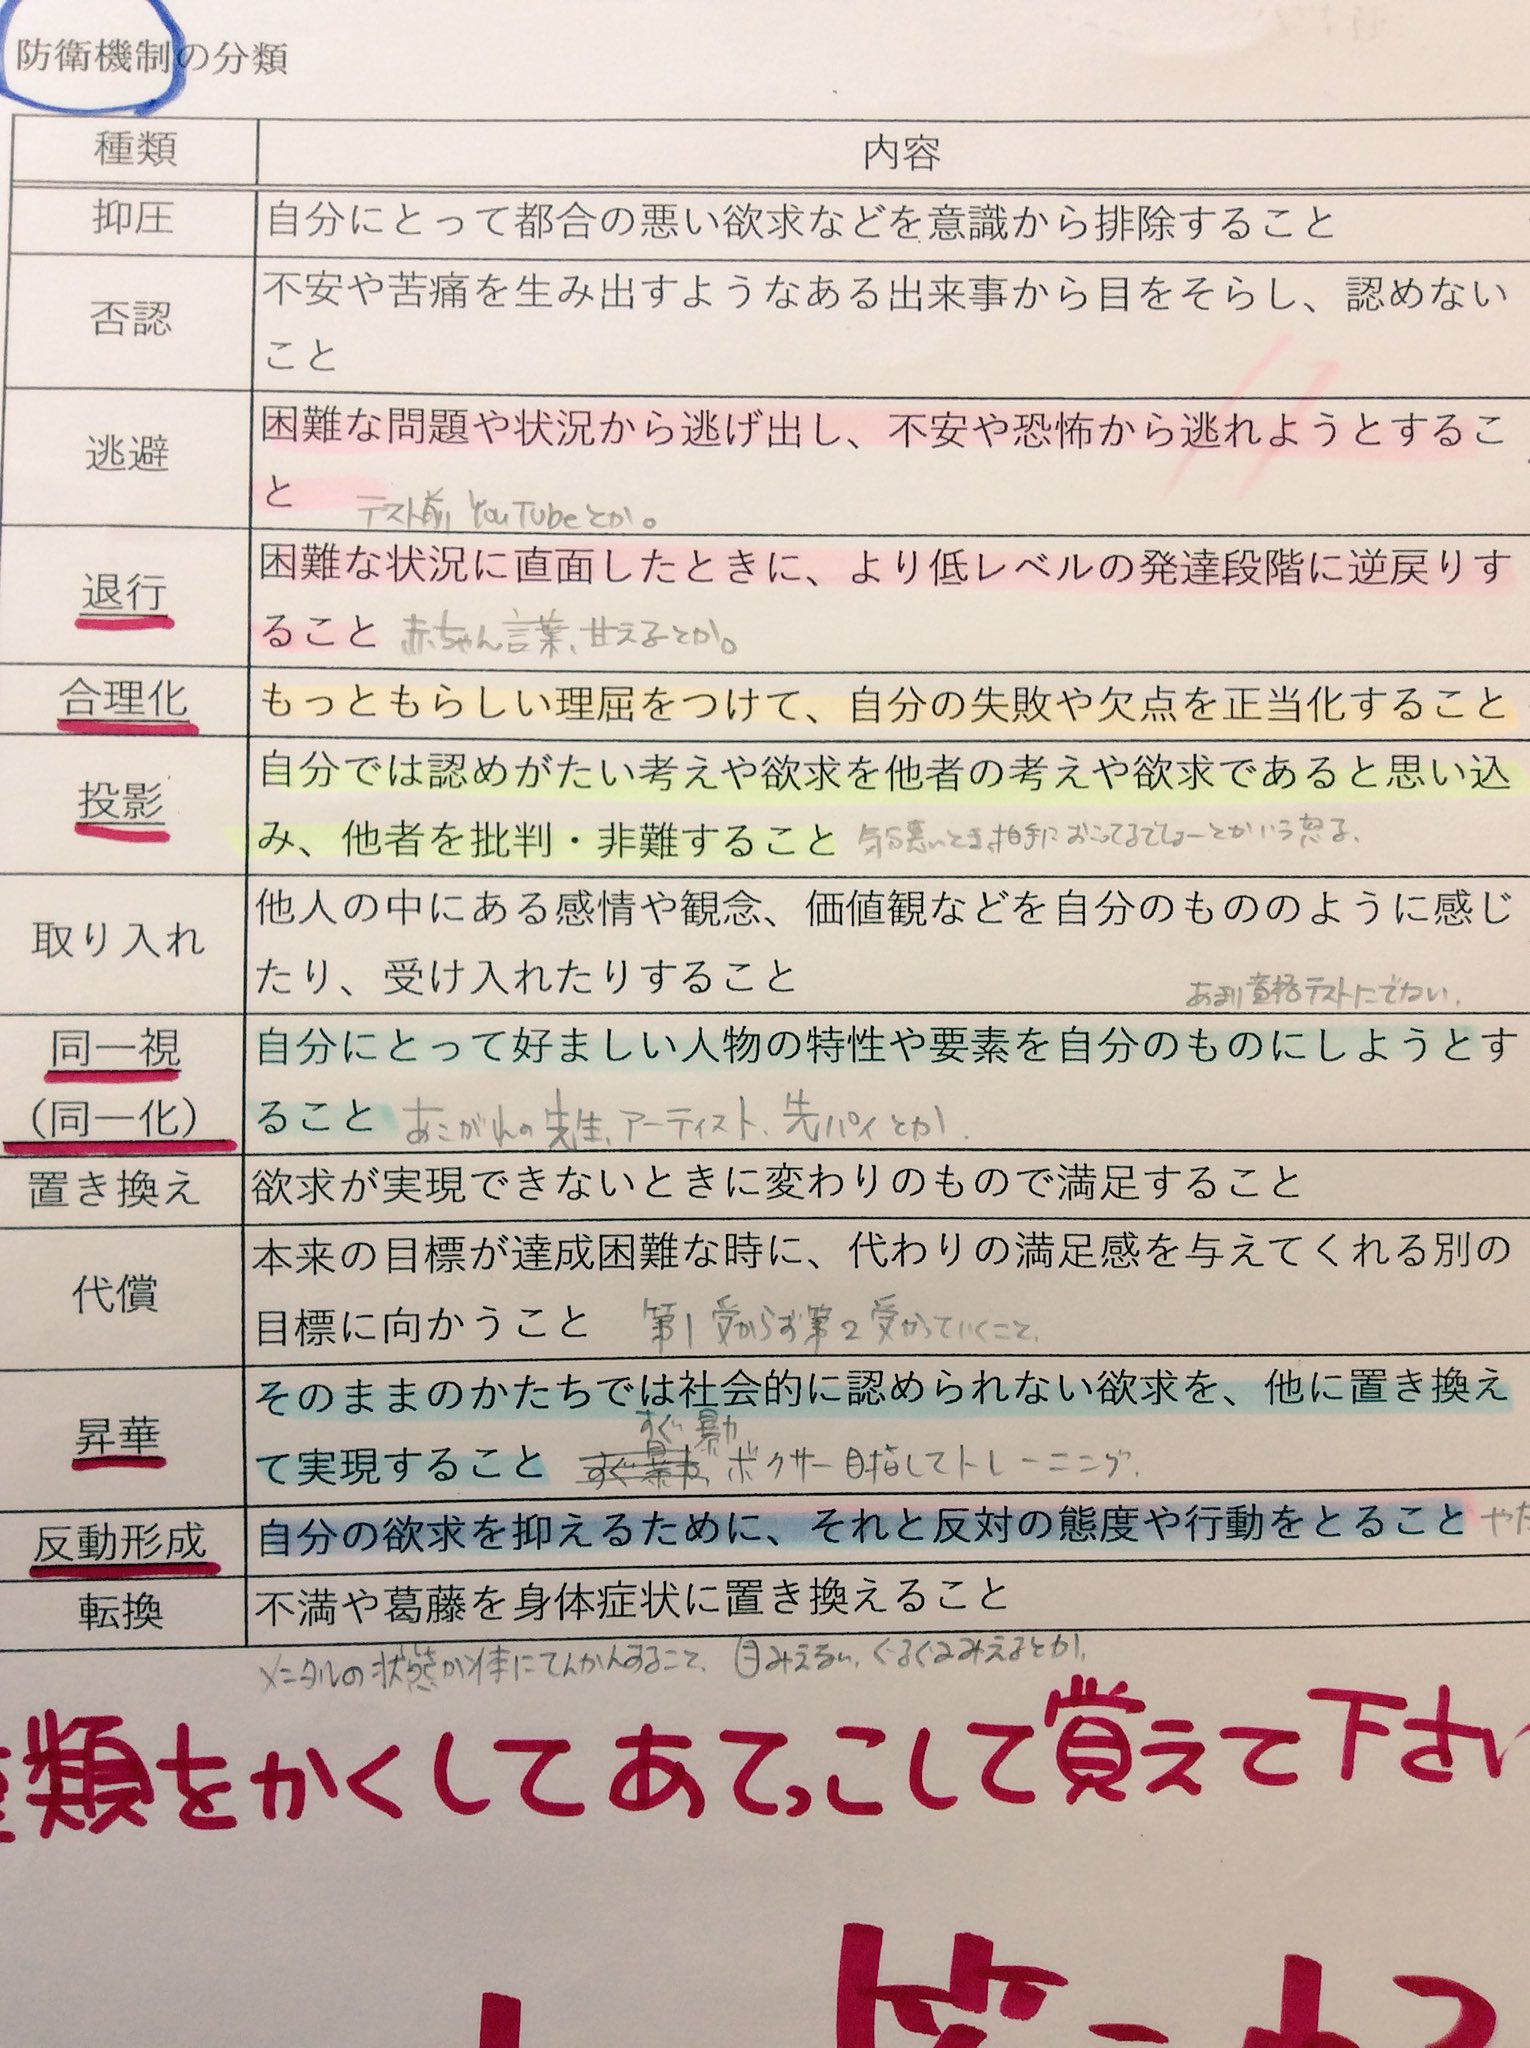 防衛機制の分類
種類 内容
抑圧 自分にとって都合の悪い欲求などを意識から排除すること
否認 不安や苦痛を生み出すようなある出来事から目をそらし、認めない
こと
逃避 困難な問題や状況から逃げ出し、不安や恐怖から逃れようとするこ
と テスト前YouTubeとか。
退行 困難な状況に直面したときに、より低レベルの発達段階に逆戻りす
ること 赤ちゃん言葉、甘えるとか。
合理化 もっともらしい理屈をつけて、自分の失敗や欠点を正当化すること
投影 自分では認めがたい考えや欲求を他者の考えや欲求であると思い込
み、他者を批判・非難すること 気分悪いとき、相手におこってるでしょーとかいう怒る。
取り入れ 他人の中にある感情や観念、価値観などを自分のもののように感じ
たり、受け入れたりすること
あまり資格テストにでない。
同一視 自分にとって好ましい人物の特性や要素を自分のものにしようとす
(同一化) ること あこがれの先生、アーティスト、先パイとか。
置き換え 欲求が実現できないときに変わりのもので満足すること
代償 本来の目標が達成困難な時に、代わりの満足感を与えてくれる別の
目標に向かうこと 第1受からず第2受かっていくこと。
昇華 そのままのかたちでは社会的に認められない欲求を、他に置き換え
すぐ暴力
て実現すること ボクサー目指してトレーニング。
反動形成 自分の欲求を抑えるために、それと反対の態度や行動をとること
転換 不満や葛藤を身体症状に置き換えること
メンタルの状態が体にてんかんすること、目みえない、ぐるぐるみえるとか。
種類をかくしてあてっこして覚えて下さい